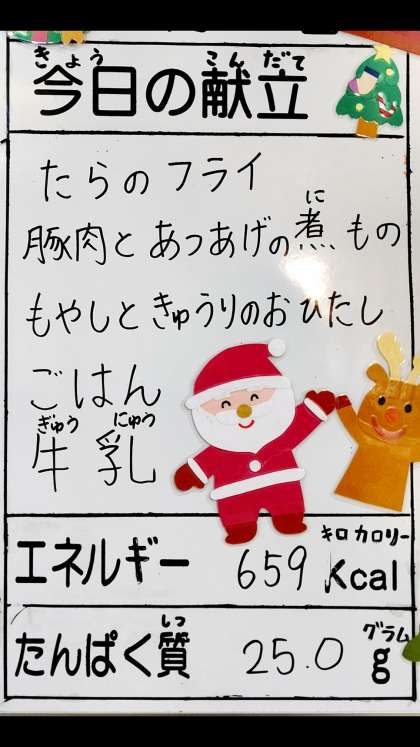 きょう こんだて
今日の献立
たらのフライ
に
豚肉とあつあげの煮もの
もやしときゅうりのおひたし
ごはん
ぎゅうにゅう
牛乳
キロカロリー
エネルギー 659 Kcal
しつ グラム
たんぱく質 25.0 g